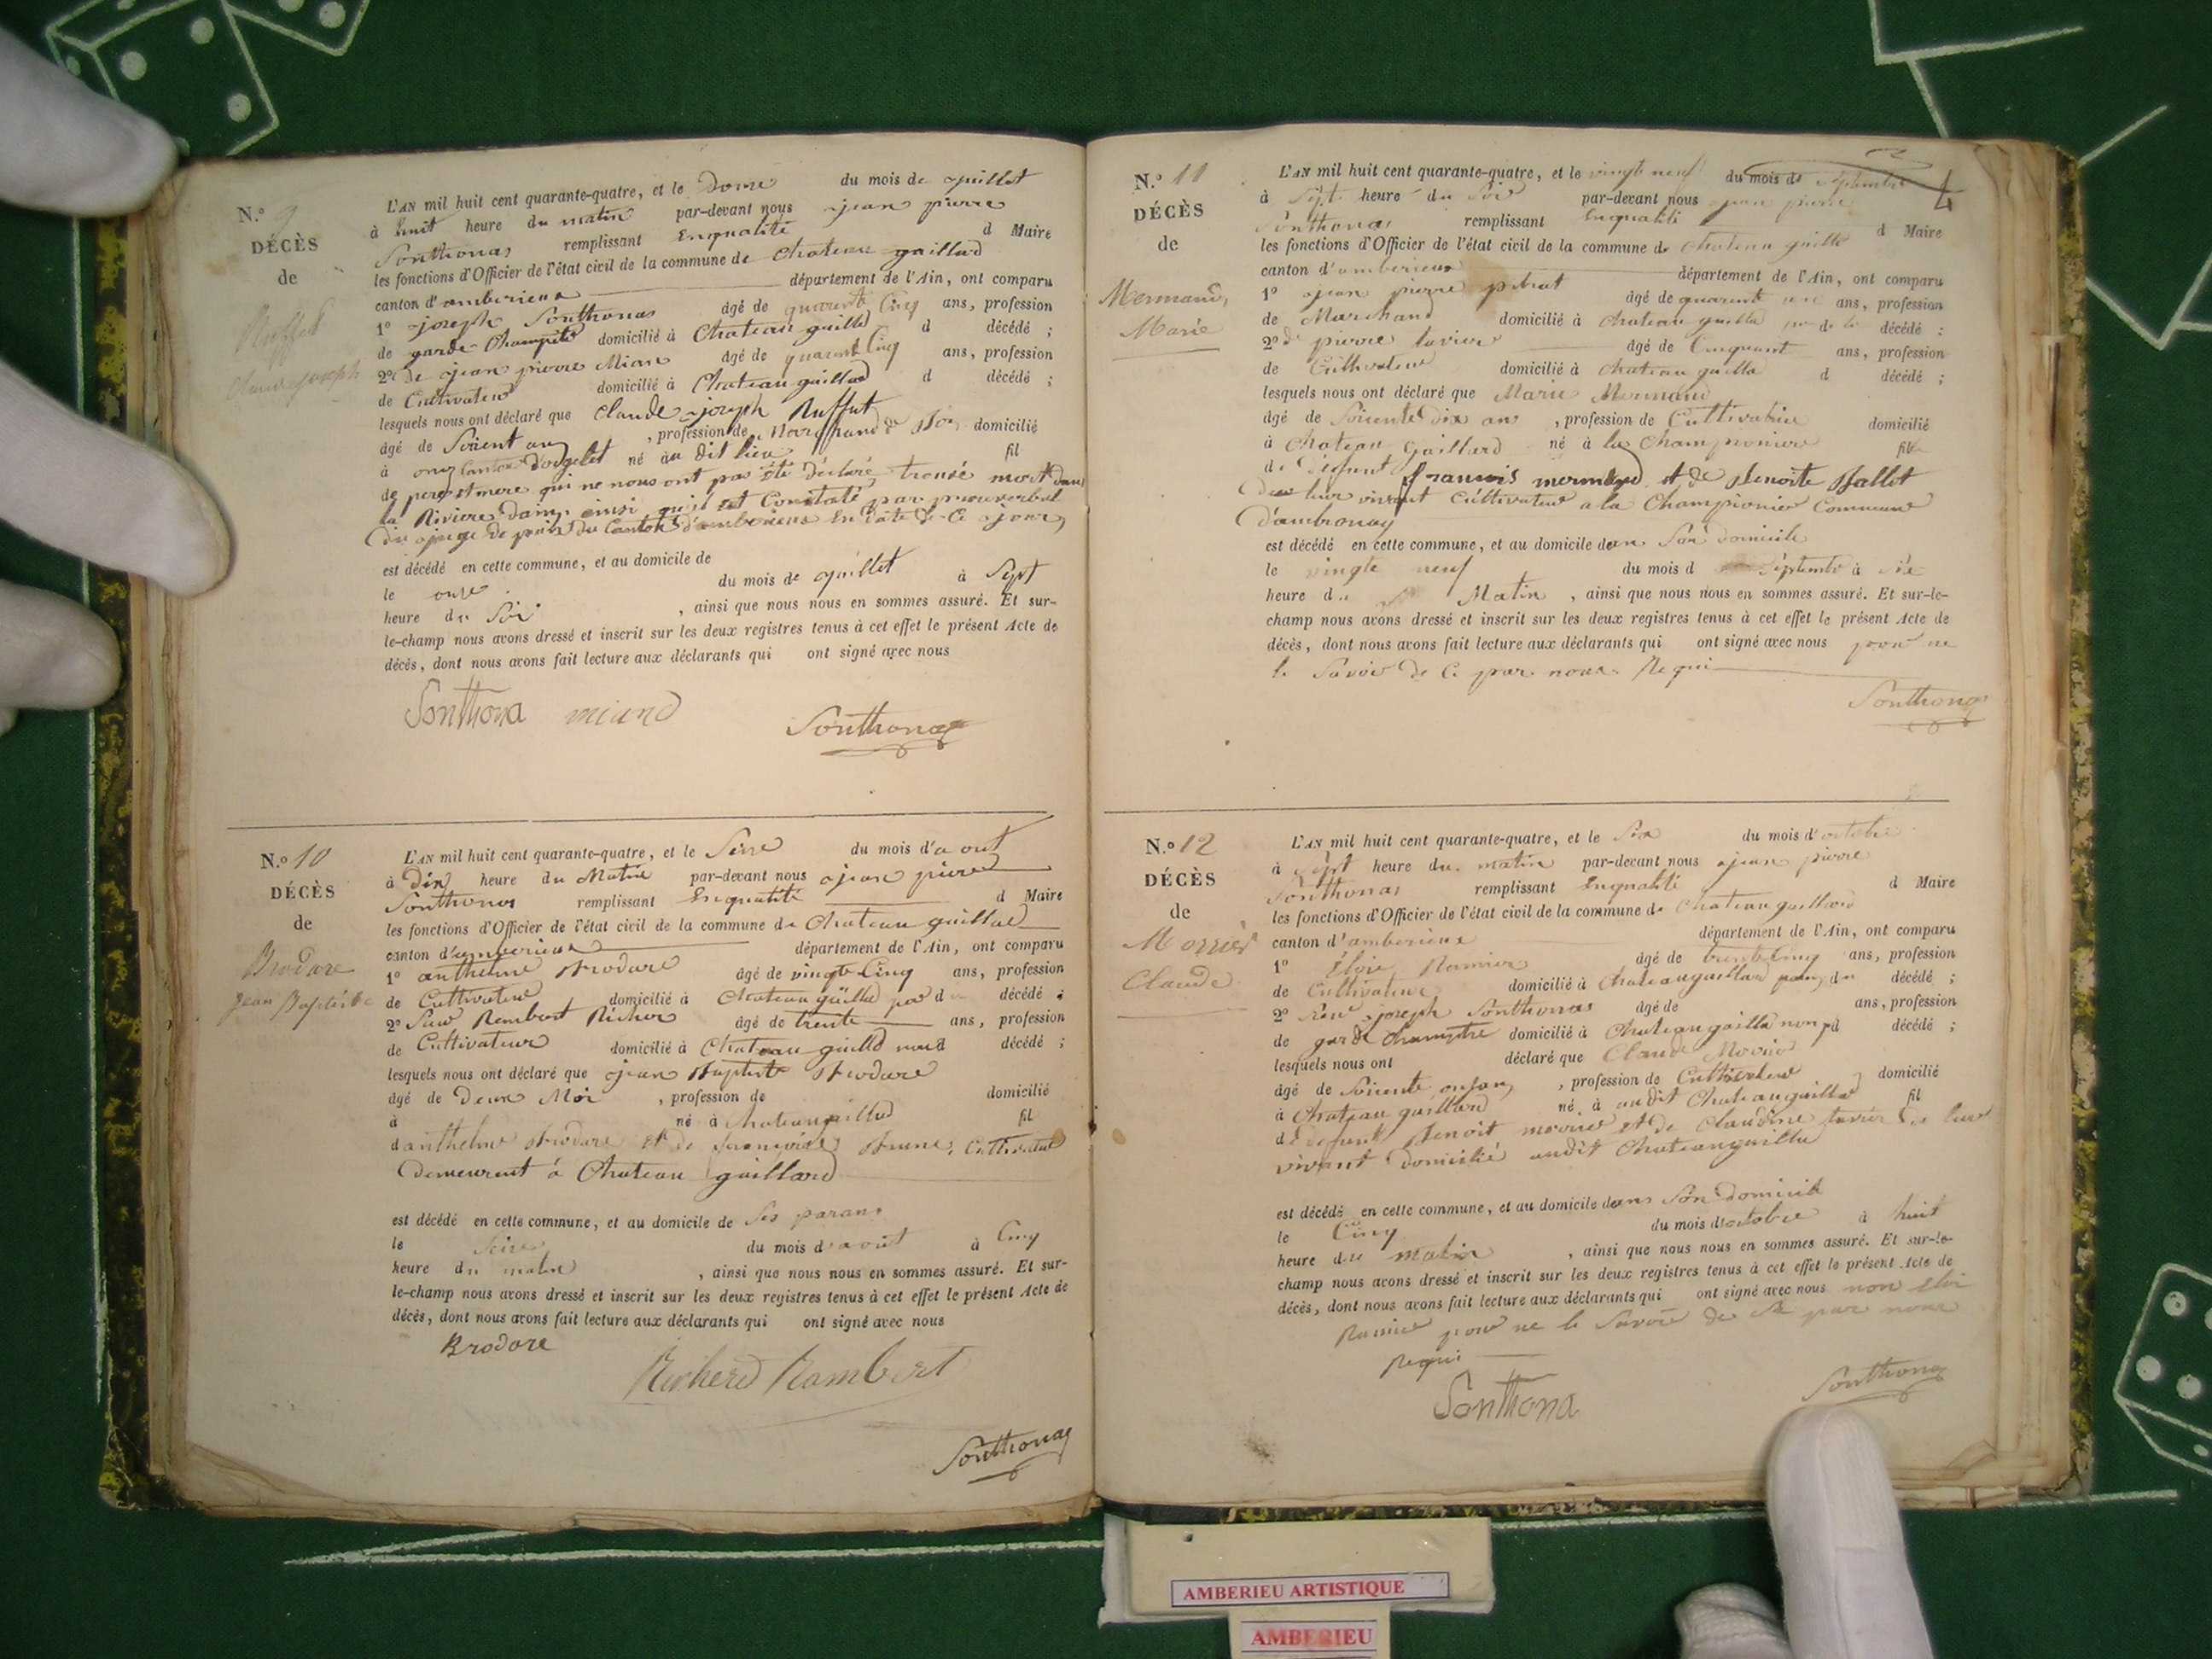 N.º 9
DÉCÈS
de
Ruffet
Claude joseph
L'AN mil huit cent quarante-quatre, et le Douze du mois de juillet
à huit heure du matin par-devant nous jean pierre
Sonthonas remplissant Enqualité d Maire
les fonctions d'Officier de l'état civil de la commune de Chateau gaillard
canton d'amberieux département de l'Ain, ont comparu
1º joseph Sonthonas âgé de quarante Cinq ans, profession
de garde Champêtre domicilié à Chateau gailld d décédé ;
2º de jean pierre Mian âgé de quarant Cinq ans, profession
de Cultivateur domicilié à Chateau gaillad d décédé ;
lesquels nous ont déclaré que Claude joseph Ruffet
âgé de Soixent ans , profession de Marchand de domicilié
à Canton d'orgelet né au dit lieu fil
de pere et mere qui ne nous ont pas été déclaré, trouvé mort dans
la Riviere dain, ainsi qu'il est Constaté par procesverbal
du juge de paix du Canton d'amberieux En date de Ce jour,
est décédé en cette commune, et au domicile de
le onze du mois de juillet à Sept
heure du Soir , ainsi que nous nous en sommes assuré. Et sur-
le-champ nous avons dressé et inscrit sur les deux registres tenus à cet effet le présent Acte de
décès, dont nous avons fait lecture aux déclarants qui ont signé avec nous
Sonthona miand Sonthonas
N.º 10
DÉCÈS
de
Brodare
jean Baptiste
L'AN mil huit cent quarante-quatre, et le Seize du mois d'a out
à Dix heure du Matin par-devant nous jean pierre
Sonthonas remplissant Enqualité d Maire
les fonctions d'Officier de l'état civil de la commune de Chateau gaillad
canton d'amberieux département de l'Ain, ont comparu
1º anthelme Brodare âgé de vingt Cinq ans, profession
de Cultivateur domicilié à Chateau gailld d décédé ;
2º Rembert Richer âgé de trente ans, profession
de Cultivateur domicilié à Chateau gailld d décédé ;
lesquels nous ont déclaré que jean Baptiste Brodare
âgé de Deux Moi , profession de domicilié
à né à Chateaugaillad fil
d'anthelme Brodare et de françoise Brune, Cultivateur
Demeurent à Chateau gaillard
est décédé en cette commune, et au domicile de Ses parans
le Seize du mois d'août à Cinq
heure du matin , ainsi que nous nous en sommes assuré. Et sur-
le-champ nous avons dressé et inscrit sur les deux registres tenus à cet effet le présent Acte de
décès, dont nous avons fait lecture aux déclarants qui ont signé avec nous
Brodare
Richerd Rambert
Sonthonas
4
N.º 11
DÉCÈS
de
Mermand,
Marie
L'AN mil huit cent quarante-quatre, et le vingt neuf du mois de septembre
à Sept heure du Soir par-devant nous jean pierre
Sonthonas remplissant Enqualité d Maire
les fonctions d'Officier de l'état civil de la commune de Chateau gailld
canton d'amberieux département de l'Ain, ont comparu
1º jean pierre âgé de quarante un ans, profession
de Marchand domicilié à Chateau gailla décédé ;
2º de pierre tavier âgé de Cinquant ans, profession
de Cultivateur domicilié à Chateau gailla d décédé ;
lesquels nous ont déclaré que Marie Mermand
âgé de Soixente Dix an , profession de Cultivatrice domicilié
à Chateau Gaillard né à la Championiere fil
de Défunt françois mermand et de Benoite Ballet
De leur vivant Cultivateur a la Championier Commune
d'ambronay
est décédé en cette commune, et au domicile dans Son domicile
le vingte neuf du mois d Septembre à
heure du Matin , ainsi que nous nous en sommes assuré. Et sur-le-
champ nous avons dressé et inscrit sur les deux registres tenus à cet effet le présent Acte de
décès, dont nous avons fait lecture aux déclarants qui ont signé avec nous pour ne
le Savoir de Ce par nous Requi
Sonthonas
N.º 12
DÉCÈS
de
Morrier
Claude
L'AN mil huit cent quarante-quatre, et le Six du mois d'octobre
à Sept heure du matin par-devant nous jean pierre
Sonthonas remplissant Enqualité d Maire
les fonctions d'Officier de l'état civil de la commune de Chateau gaillard
canton d'amberieux département de l'Ain, ont comparu
1º Eloie Ramier âgé de trente Cinq ans, profession
de Cultivateur domicilié à Chateaugaillard du décédé ;
2º joseph Sonthonas âgé de ans, profession
de garde Champêtre domicilié à Chateau gailla décédé ;
lesquels nous ont déclaré que Claude Morrier
âgé de Soixente onzans , profession de Cultivateur domicilié
à Chateau gaillard né à audit Chateaugailla fil
de Défunt Benoit morrier et de Claudine tavier De leur
vivant Domicilié audit Chateaugailla
est décédé en cette commune, et au domicile dans Son Domicile
le Cinq du mois d'octobre à huit
heure du matin , ainsi que nous nous en sommes assuré. Et sur-le-
champ nous avons dressé et inscrit sur les deux registres tenus à cet effet le présent Acte de
décès, dont nous avons fait lecture aux déclarants qui ont signé avec nous non Eloi
Ramier pour ne le Savoir de Ce par nous
Requi
Sonthona Sonthonas
AMBERIEU ARTISTIQUE
AMBERIEU